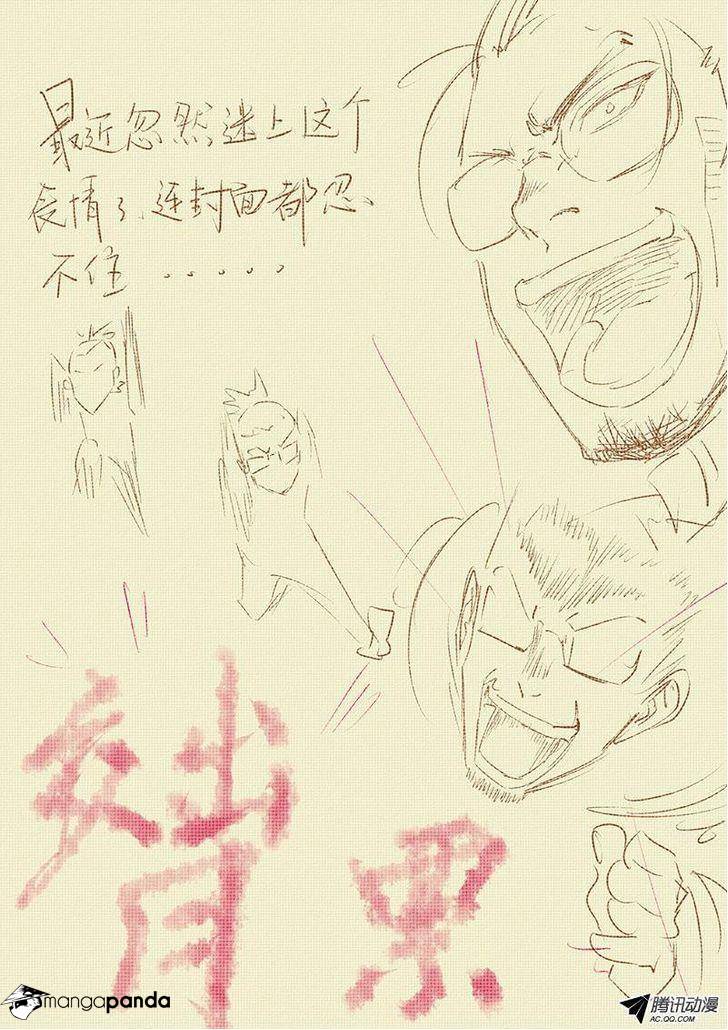 最近忽然迷上这个
表情了,连封面都忍
不住 ......
累
mangapanda
腾讯动漫
AC.QQ.COM